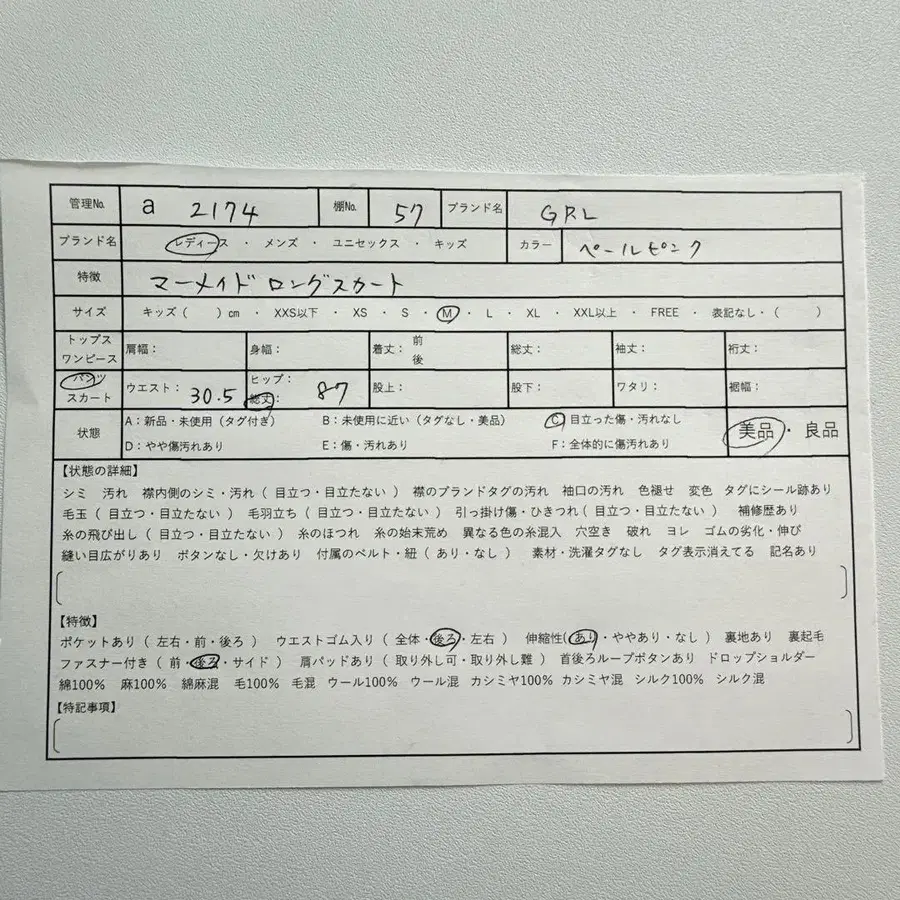 管理No. a 2174 棚No. 57 ブランド名 GRL
ブランド名 レディース ・ メンズ ・ ユニセックス ・ キッズ カラー ペールピンク
特徴 マーメイドロングスカート
サイズ キッズ ( ) cm ・ XXS以下 ・ XS ・ S ・ M ・ L ・ XL ・ XXL以上 ・ FREE ・ 表記なし ・ ( )
トップス ワンピース 肩幅: 身幅: 着丈: 前 後 総丈: 袖丈: 裄丈:
パンツ スカート ウエスト: 30.5 ヒップ: 総丈: 87 股上: 股下: ワタリ: 裾幅:
状態 A:新品・未使用(タグ付き) B:未使用に近い(タグなし・美品) C 目立った傷・汚れなし 美品 ・ 良品
D:やや傷汚れあり E:傷・汚れあり F:全体的に傷汚れあり
【状態の詳細】
シミ 汚れ 襟内側のシミ・汚れ ( 目立つ・目立たない ) 襟のブランドタグの汚れ 袖口の汚れ 色褪せ 変色 タグにシール跡あり
毛玉 ( 目立つ・目立たない ) 毛羽立ち ( 目立つ・目立たない ) 引っ掛け傷・ひきつれ ( 目立つ・目立たない ) 補修歴あり
糸の飛び出し ( 目立つ・目立たない ) 糸のほつれ 糸の始末荒め 異なる色の糸混入 穴空き 破れ ヨレ ゴムの劣化・伸び
縫い目広がりあり ボタンなし・欠けあり 付属のベルト・紐 ( あり・なし ) 素材・洗濯タグなし タグ表示消えてる 記名あり
【特徴】
ポケットあり ( 左右・前・後ろ ) ウエストゴム入り ( 全体・後ろ・左右 ) 伸縮性( あり・ややあり・なし ) 裏地あり 裏起毛
ファスナー付き ( 前・後ろ・サイド ) 肩パッドあり ( 取り外し可・取り外し難 ) 首後ろループボタンあり ドロップショルダー
綿100% 麻100% 綿麻混 毛100% 毛混 ウール100% ウール混 カシミヤ100% カシミヤ混 シルク100% シルク混
【特記事項】